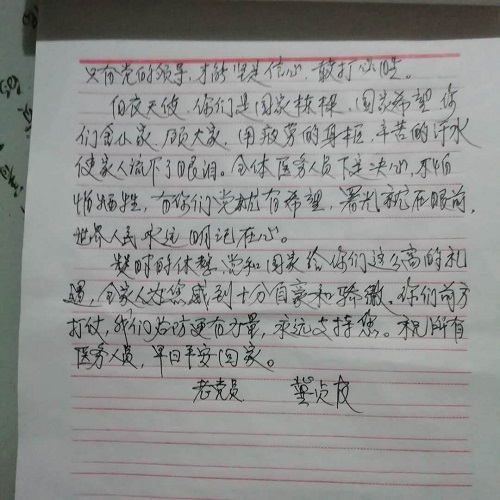 只有党的领导,才能坚定信心,敢打必胜。
白衣天使,你们是国家栋梁,国家希望,你
们舍小家,顾大家,用疲劳的身躯,辛苦的汗水
使家人流下了眼泪。全体医务人员下定决心,不怕
怕牺牲,有你们党就有希望,曙光就在眼前,
世界人民永远明记在心。
暂时的休整,党和国家给你们这么高的礼
遇,全家人为您感到十分自豪和骄傲。你们前方
打仗,我们后方更有力量,永远支持您。祝所有
医务人员,早日平安回家。
老党员 龚贞友